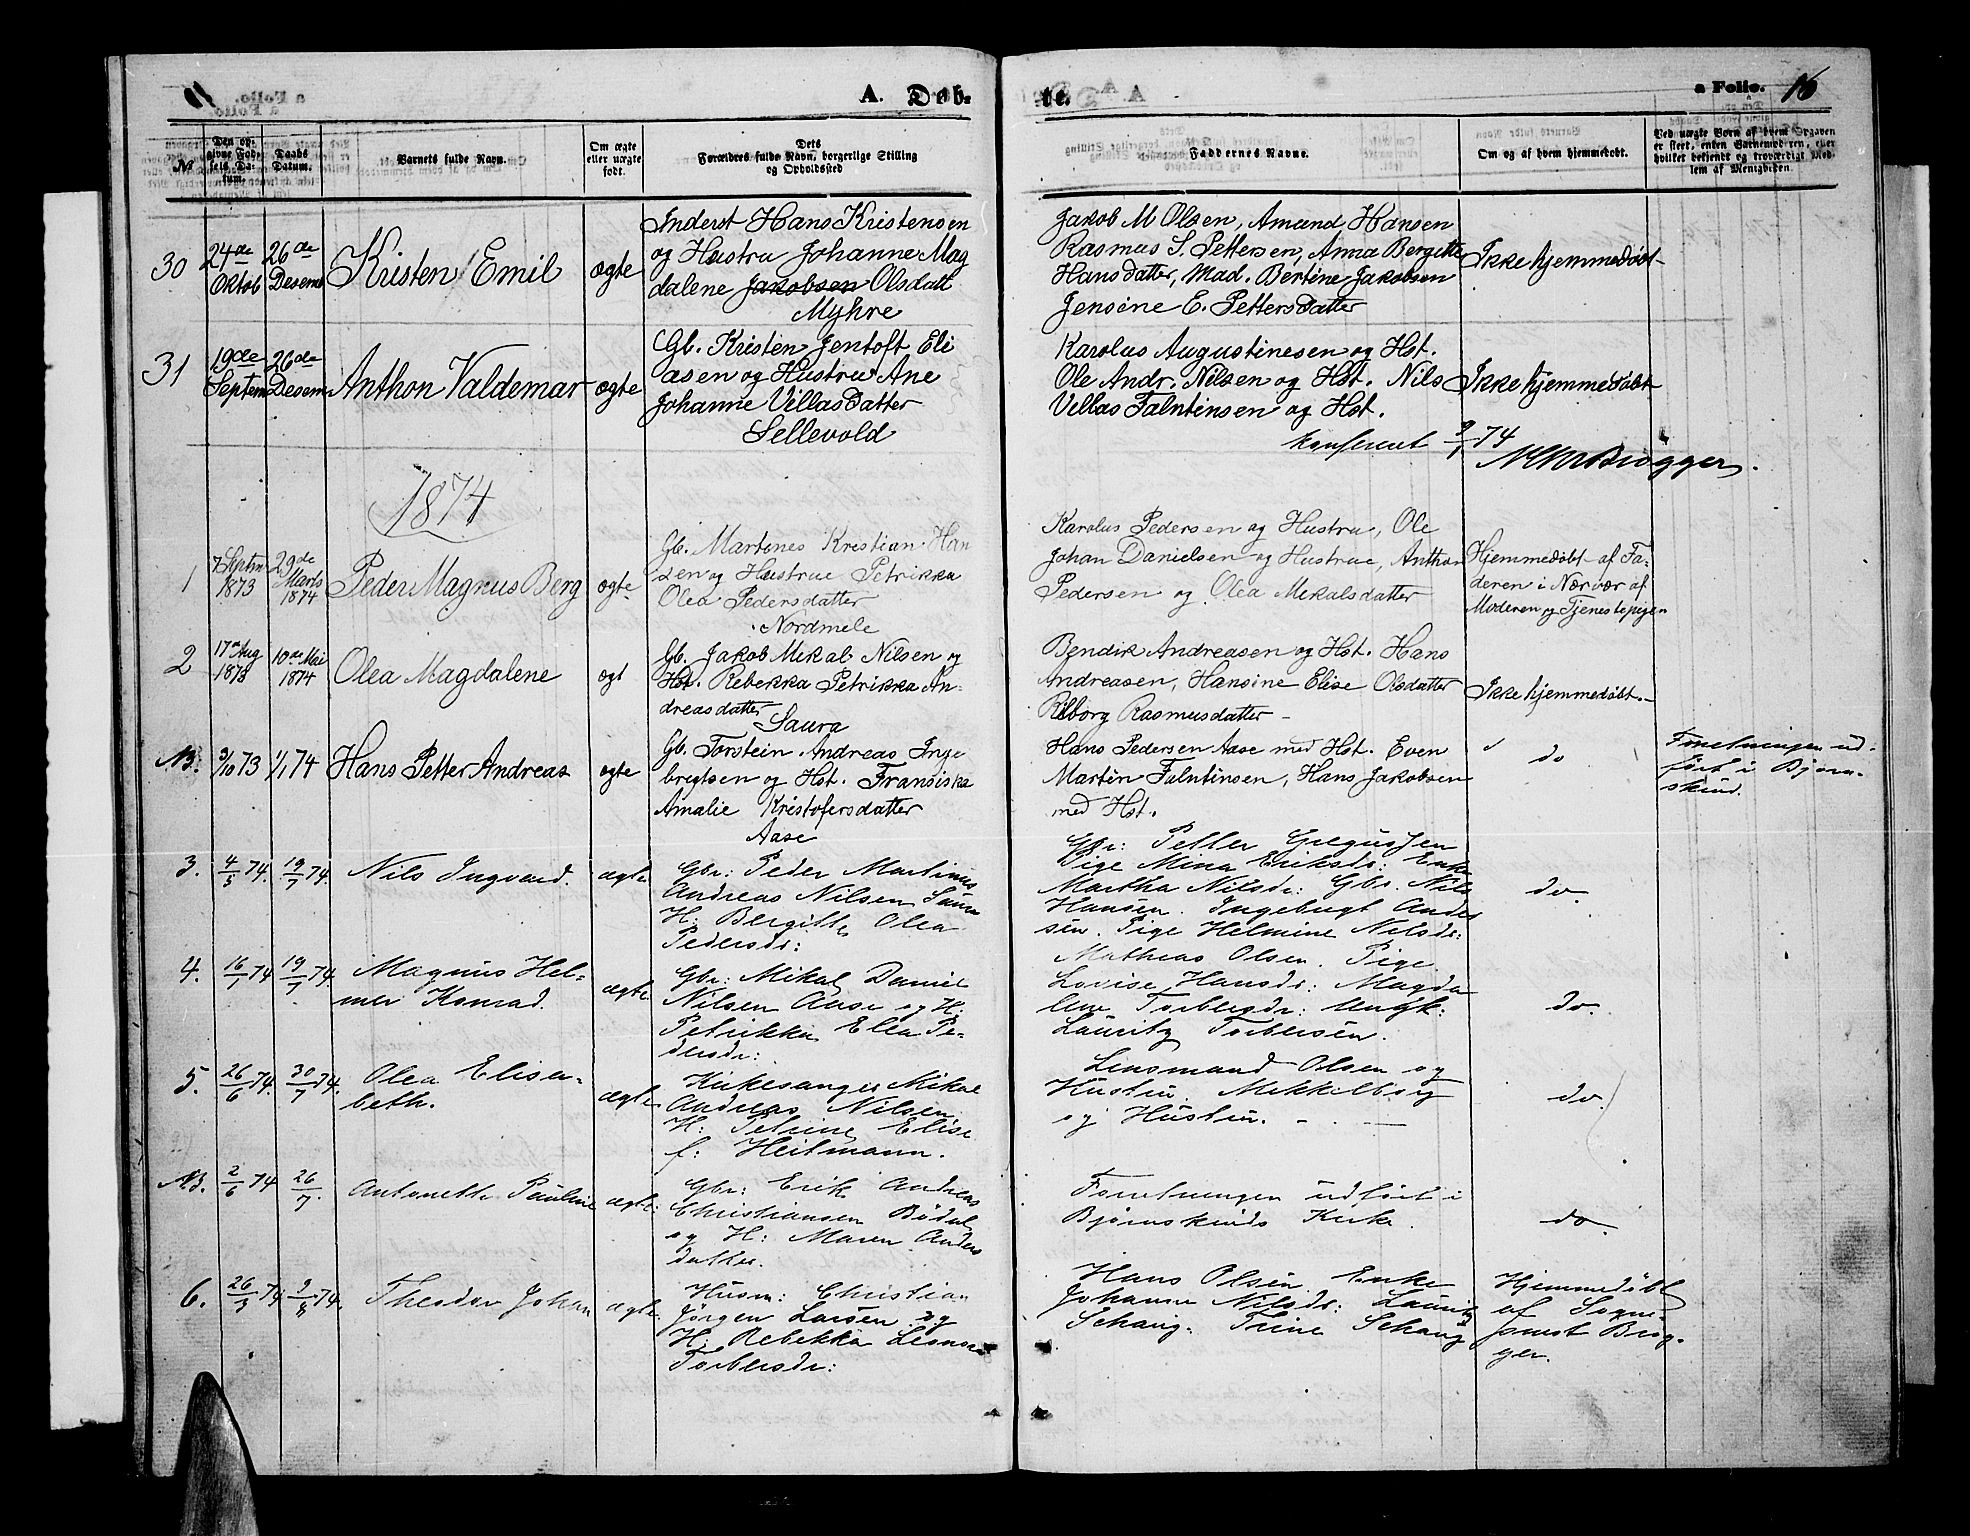 A. Døb-
te.
a Folio. 16
№
Den op-
givne Fød-
sels Da-
tum.
Daabs
Datum.
Barnets fulde Navn.
Om ægte
eller uægte
født.
Dets
Forældres fulde Navn, borgerlige Stilling
og Opholdssted
Faddernes Navne.
Om og af hvem hjemmedøbt.
Ved uægte Børn af hvem Opgaven
er skeet, enten Barnemoderen, eller
hvilket bekjendt og troværdigt Med-
lem af Menigheden.
30
24de
Oktob
26de
Desemb
Kristen Emil
ægte
Inderst Hans Kristensen
og Hustru Johanne Mag
dalene Jakobsen Olsdatt
Myhre
Jakob M Olsen, Amund Hansen
Rasmus S. Pettersen, Anna Bergitte
Hansdatter, Mad. Bertine Jakobsen
Jensine E. Pettersdatter
Ikke hjemmedøbt
31
19de
Septem
26de
Desem
Anthon Valdemar
ægte
Gb. Kristen Jentoft Eli
asen og Hustru Ane
Johanne Vellasdatter
Sellevold
Karolus Augustinesen og Hst.
Ole Andr. Nilsen og Hst. Nils
Vellas Falntinsen og Hst.
Ikke hjemmedøbt
Konfereret 9/1 74
Brøgger.
1874
1
7 Septm
1873
29de
Marts
1874
Peder Magnus Berg
ægte
Gb. Martines Kristian Han
sen og Hustrue Petrikka
Olea Pedersdatter
Nordmele
Karolus Pedersen og Hustru, Ole
Johan Danielsen og Hustrue, Anthon
Pedersen og Olea Mekalsdatter
Hjemmedøbt af Fa-
deren i Nærvær af
Moderen og Tjenestepigen
2
17 Aug
1873
10de Mai
1874
Olea Magdalene
ægt
Gb. Jakob Mekal Nilsen og
Hst. Rebekka Petrikka An-
dreasdatter
Saura
Bendik Andreasen og Hst. Hans
Andreasen, Hansine Elise Olsdatter
Rasmusdatter -
Ikke hjemmedøbt.-
NB.
3/10 73
1/1 74
Hans Petter Andreas
ægte
Gb. Torstein Andreas Inge
brigtsen og Hst. Fransiska
Amalie Kristofersdatter
Aase
Hans Pedersen Aase med Hst. Even
Martin Falntinsen, Hans Jakobsen
med Hst.
do
Forretningen ud-
ført i Bjørn-
skind.
3.
4/5 74.
19/7 74.
Nils Ingvard.
ægte
Gbr: Peder Martinus
Andreas Nilsen Saura
H: Bergitte Olea
Pedersdr:
Gbr: Petter Gregusen
Pige Mina Eriksdr: Enke
Martha Nilsdr: Gbr. Nils
Hansen. Ingebrigt Andes
sen. Pige Helmine Nilsdr:
do.
4.
16/1 74
19/7 74.
Magnus Hel-
mer Konrad.
ægte
Gbr: Mikal Daniel
Nilsen Aase og H:
Petrikka Elea Pe-
dersdr:
Mathias Olsen. Pige
Lovise Hansdr: Magda
lene Torbersdr: Ungk:
Lauritz Torbersen.
do.
5.
26/6 74.
30/7 74.
Olea Elisa-
beth.
ægte
Kirkesanger Mikal
Andreas Nilsen
H: Petrine Elise
f: Heitmann.
Lensmand Olsen og
Hustru. Mekkelborg
og Hustru. -
do.
NB.
2/6 74
26/7.
Antonette Pauline
ægte:
Gbr: Erik Andreas
Christiansen Bødal
og H: Maren Anders
datter.
Forretningen udført i
Bjørnskinds Kirke.
do.
6.
26/3 74
9/8 74.
Theodor Johan
ægte.
Husm: Christian
Jørgen Larsen og
H: Rebekka Leonore
Torbersdr:
Hans Olsen Enke
Johanna Nilsdr: Lauritz
Schang. Trine Schang
Hjemmedøbt
af Sogne-
præst Brøg-
ger.